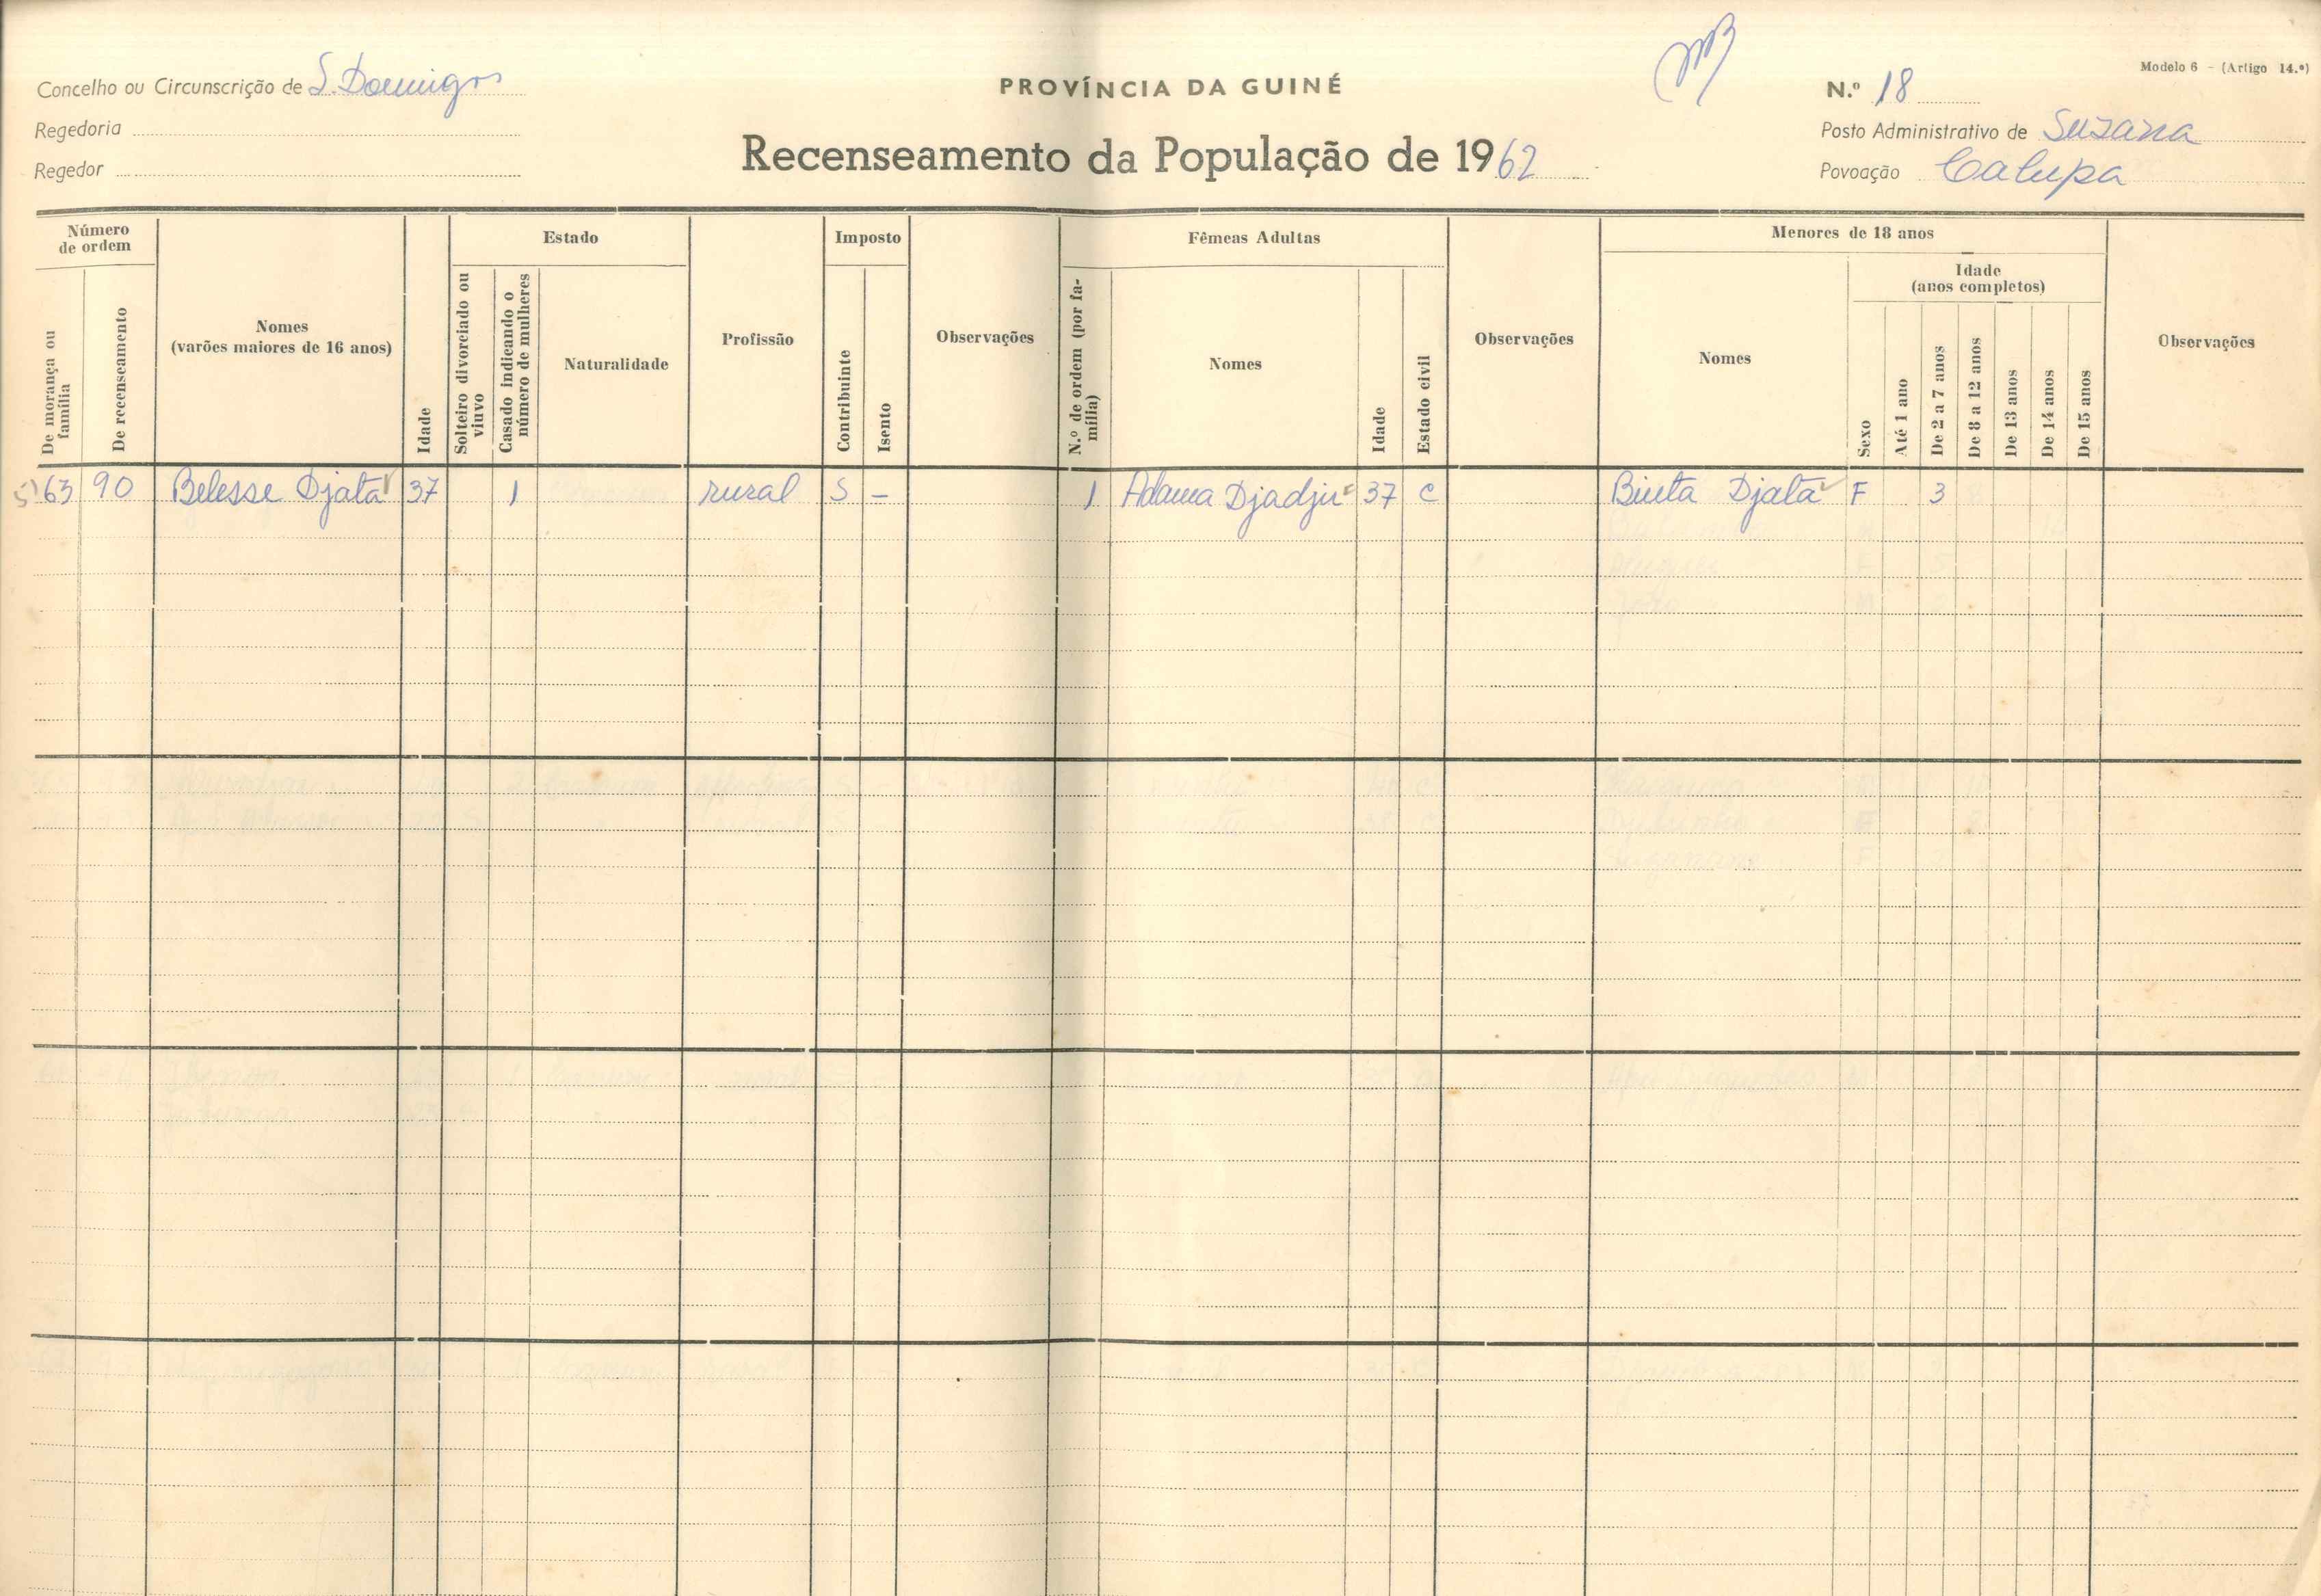 Modelo 6 - (Artigo 14.º)
Concelho ou Circunscrição de S. Domingos
PROVÍNCIA DA GUINÉ
N.º 18
Regedoria
Posto Administrativo de Suzana
Regedor
Recenseamento da População de 1962
Povoação Calupa
Número de ordem
De morança ou família
De recenseamento
Nomes
(varões maiores de 16 anos)
Idade
Estado
Solteiro divorciado ou viuvo
Casado indicando o número de mulheres
Naturalidade
Profissão
Imposto
Contribuinte
Isento
Observações
Fêmeas Adultas
N.º de ordem (por família)
Nomes
Idade
Estado civil
Observações
Menores de 18 anos
Nomes
Sexo
Idade
(anos completos)
Até 1 ano
De 2 a 7 anos
De 8 a 12 anos
De 13 anos
De 14 anos
De 15 anos
Observações
63 90 Belesse Djata 37 1 rural S - 1 Adama Djadju 37 C Binta Djata F 3